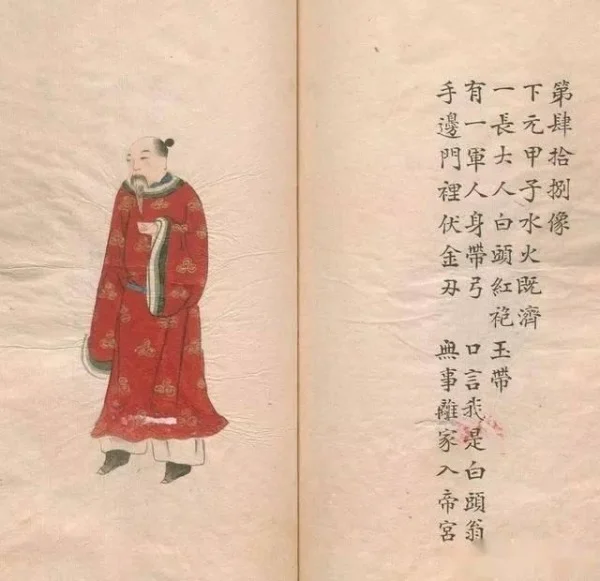 第肆拾捌像
下元甲子水火既濟
一長大人白頭紅袍 玉帶
有一軍人身帶弓 口言我是白頭翁
手邊門裡伏金刄 無事離家入帝宮